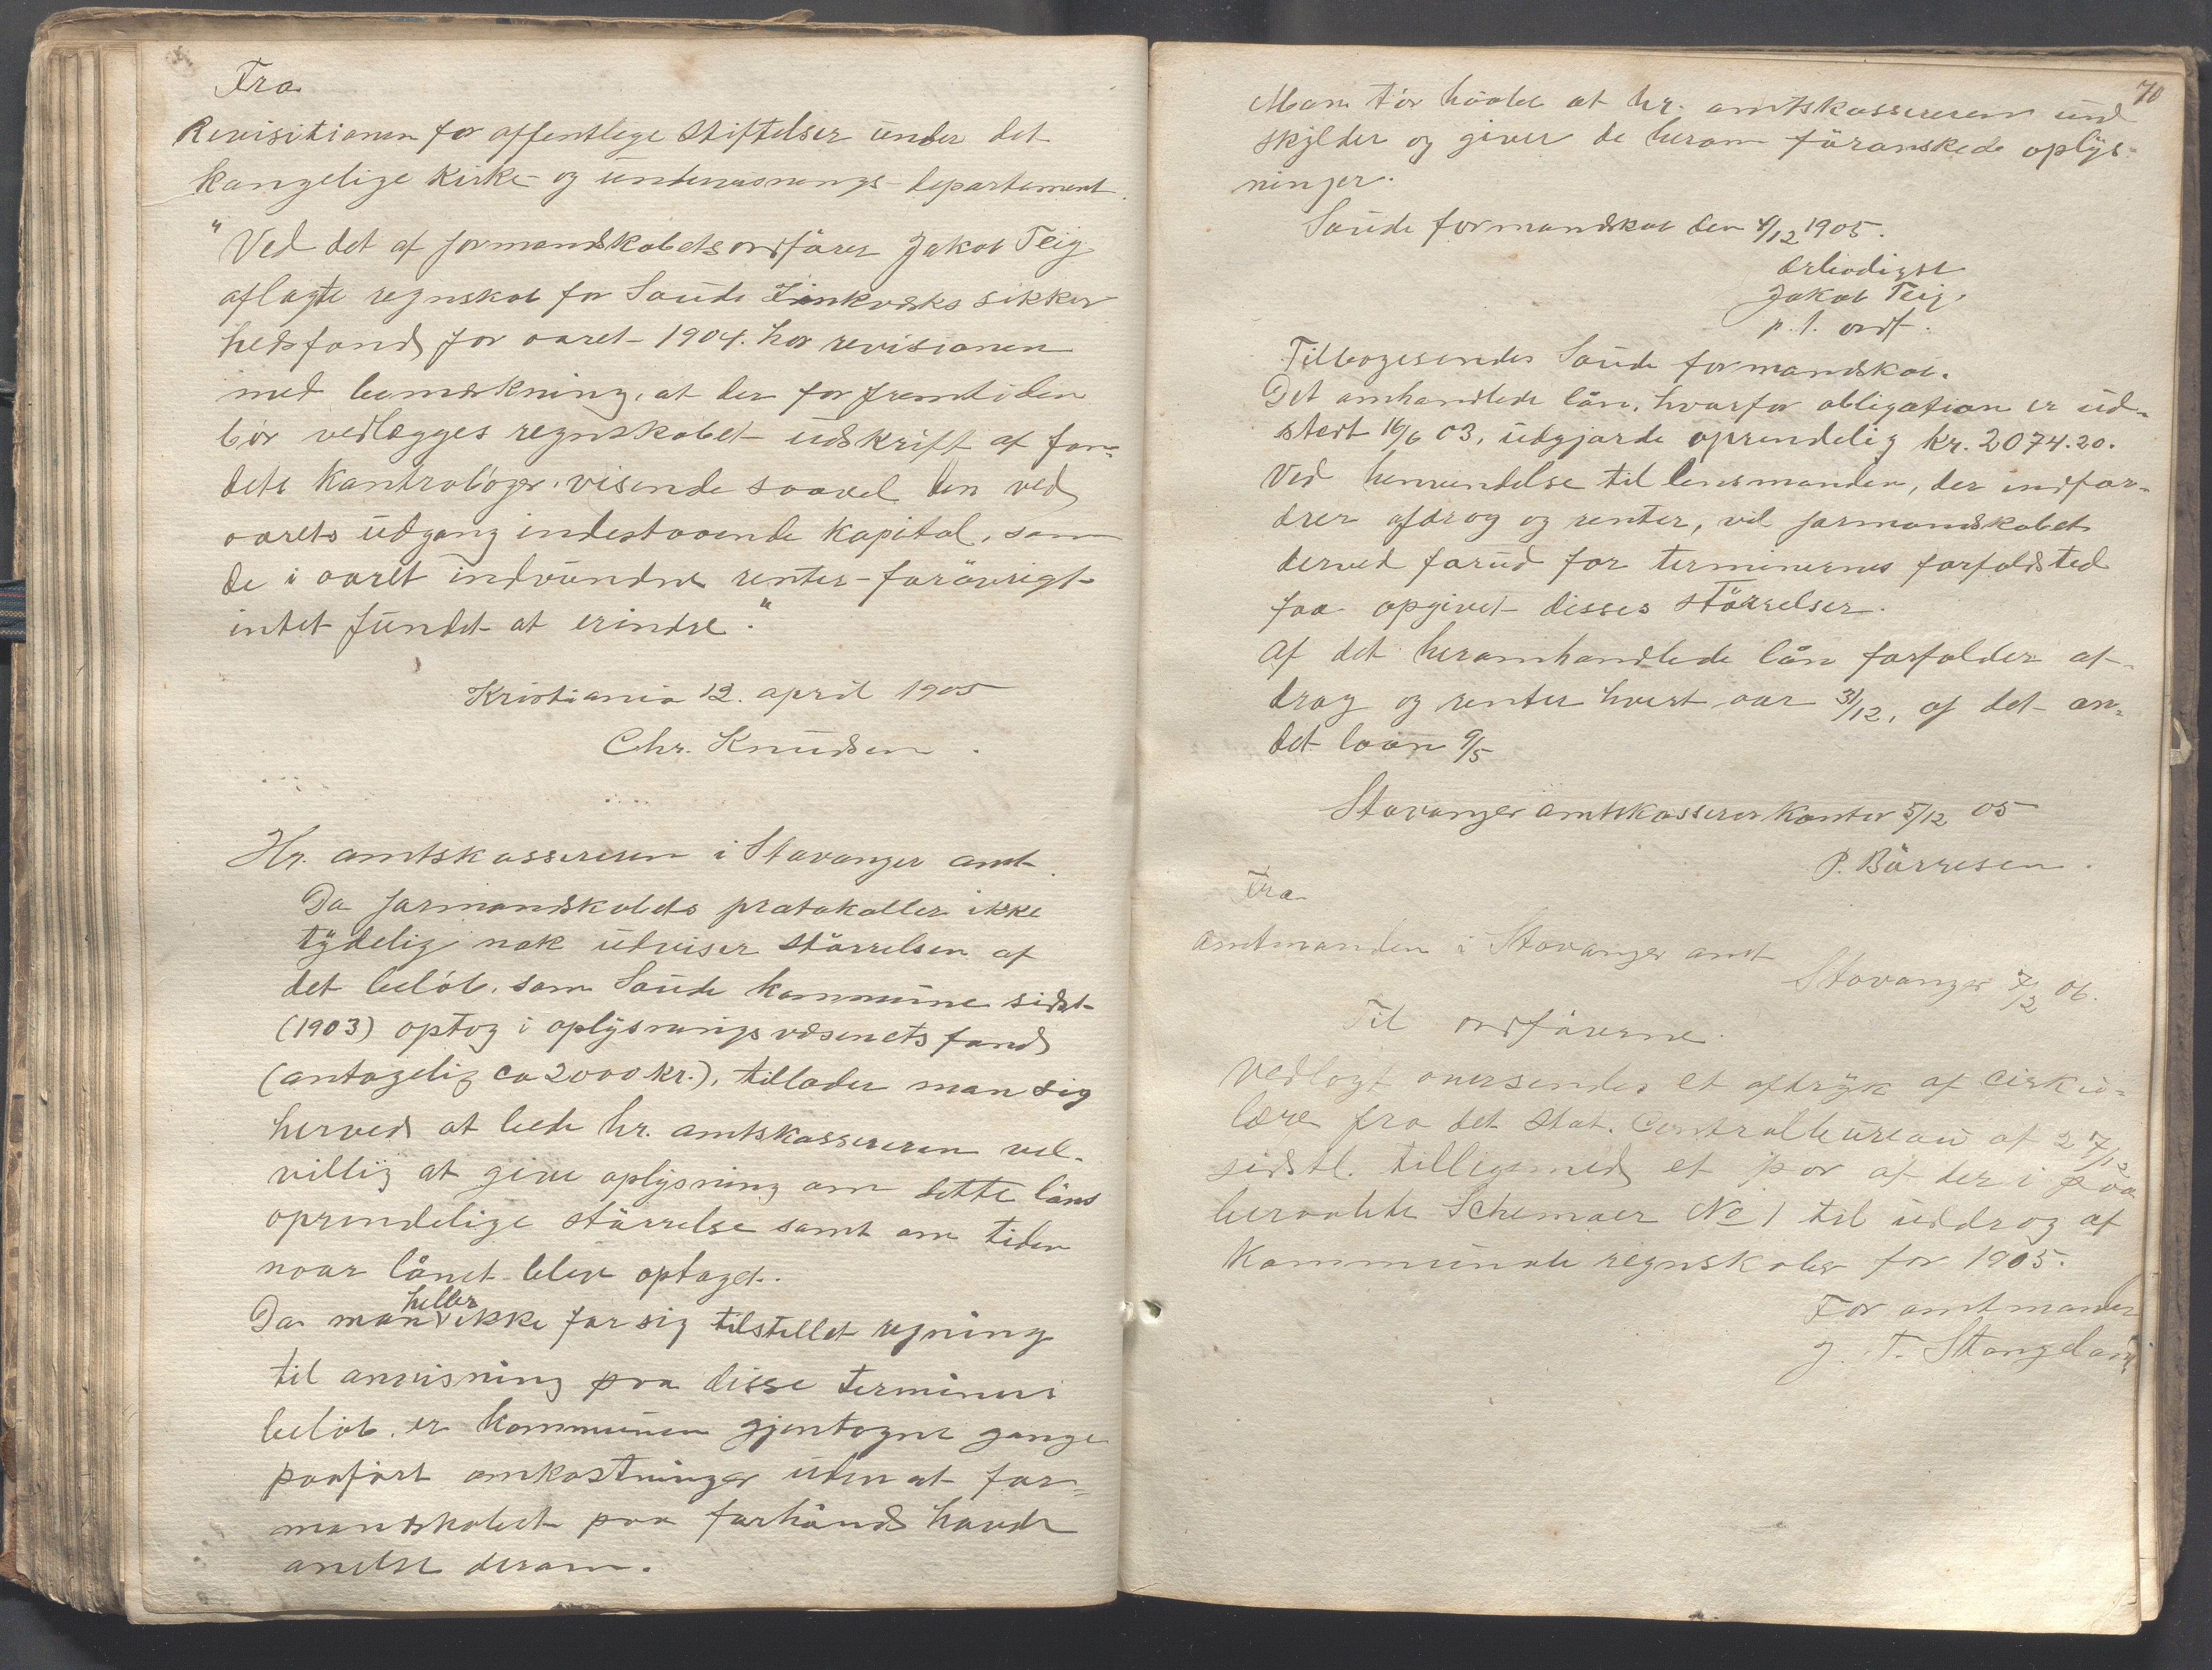 Fra
Revisitionen for offentlege Stiftelser under det
kongelige Kirke- og undervisnings-departement.
"Ved det af formandskabets ordfører Jakob Teig
aflagte regnskab for Saude Zinkværks sikker
hedsfond for aaret 1904. har revisionen
med bemærkning, at der for fremtiden
bør vedlægges regnskabet udskrift af fon-
dets Kontrabøger, visende saavel den ved
aarets udgang indestaaende Kapital, som
de i aaret indvundne renter-forøvrigt
intet fundet at erindre."
Kristiania 12. april 1905
Chr. Knudsen.
Hr. amtskassereren i Stavanger amt.
Da formandskabets protokoller ikke
tydelig nok udviser størrelsen af
det beløb, som Saude kommune sidst
(1903) optog i oplysningsvæsenets fond
(antagelig ca 2000 kr.), tillader man sig
herved at bede hr. amtskassereren vel-
villig at give oplysning om dette låns
oprindelige størrelse samt om tiden
naar lånet blev optaget.
Da man heller ikke får sig tilstillet regning
til anvisning paa disse terminers
beløb, er kommunen gjentagne gange
paaført omkostninger uden at for-
mandskabet paa forhånd havde
anelse derom.
70
Man tør håabe at hr. amtskassereren und
skylder og giver de herom førønskede oplys-
ninger.
Saude formandskab den 4/12 1905.
ærbødigst
Jakob Teig
p.t. ordf.
Tilbagesendes Saude formandskab.
Det omhandlede lån, hvorfor obligation er ud-
stedt 16/6 03, udgjorde oprindelig kr. 2074.20.
Ved henvendelse til lensmanden, der indfor-
drer afdrag og renter, vil formandskabet
derved forud for terminernes forfaldstid
faa opgivet disses størrelser.
Af det heromhandlede lån forfalder af-
drag og renter hvert aar 31/12, af det an-
det laan 9/5
Stavanger amtskasserer kontor 5/12 05
P. Børresen.
Fra
amtmanden i Stavanger amt
Stavanger 7/2 06.
Til ordførerne.
Vedlagt oversendes et aftryk af cirku-
lære fra det stat. Centralbureau af 27/12
sidstl. tilligemed et par af der i paa
beraabte Schemaer No 1 til uddrag af
kommunale regnskaber for 1905.
For amtmanden
J. T. Stangeland